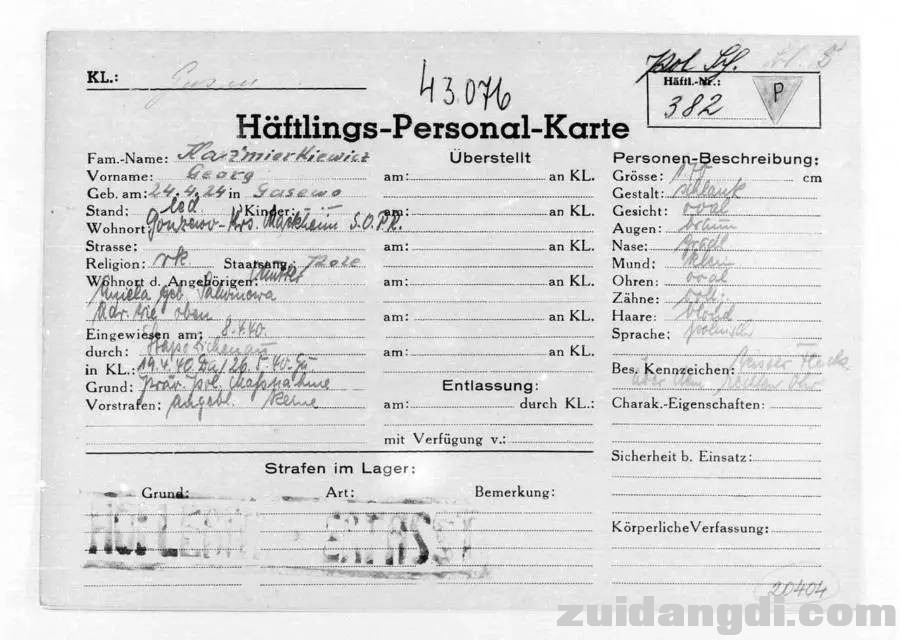 Pol. Sch.
KL.: Gusen
43076
Häftl.-Nr.:
382
P
Häftlings-Personal-Karte
Fam.-Name: Kazimierkiewicz
Vorname: Georg
Geb. am: 24.4.24 in Gasewo
Stand: led. Kinder:
Wohnort:
Strasse:
Religion: rk Staatsang.: Pole
Wohnort d. Angehörigen: Mutter
Aniela geb.
Adr. wie oben
Eingewiesen am: 8.4.40.
durch: Stapo Zichenau
in KL.: 19.4.40. Da/26.5.40. Gu.
Grund:
Vorstrafen: angebl. keine
Überstellt
am: an KL.
am: an KL.
am: an KL.
am: an KL.
am: an KL.
am: an KL.
Entlassung:
am: durch KL.:
mit Verfügung v.:
Personen-Beschreibung:
Grösse: 170 cm
Gestalt: schlank
Gesicht: oval
Augen: braun
Nase: gradl.
Mund: klein
Ohren: oval
Zähne:
Haare: blond
Sprache: polnisch
Bes. Kennzeichen: weisser Fleck
über dem rechten Ohr
Charak.-Eigenschaften:
Sicherheit b. Einsatz:
Körperliche Verfassung:
Strafen im Lager:
Grund: Art: Bemerkung:
20404
zuidangdi.com